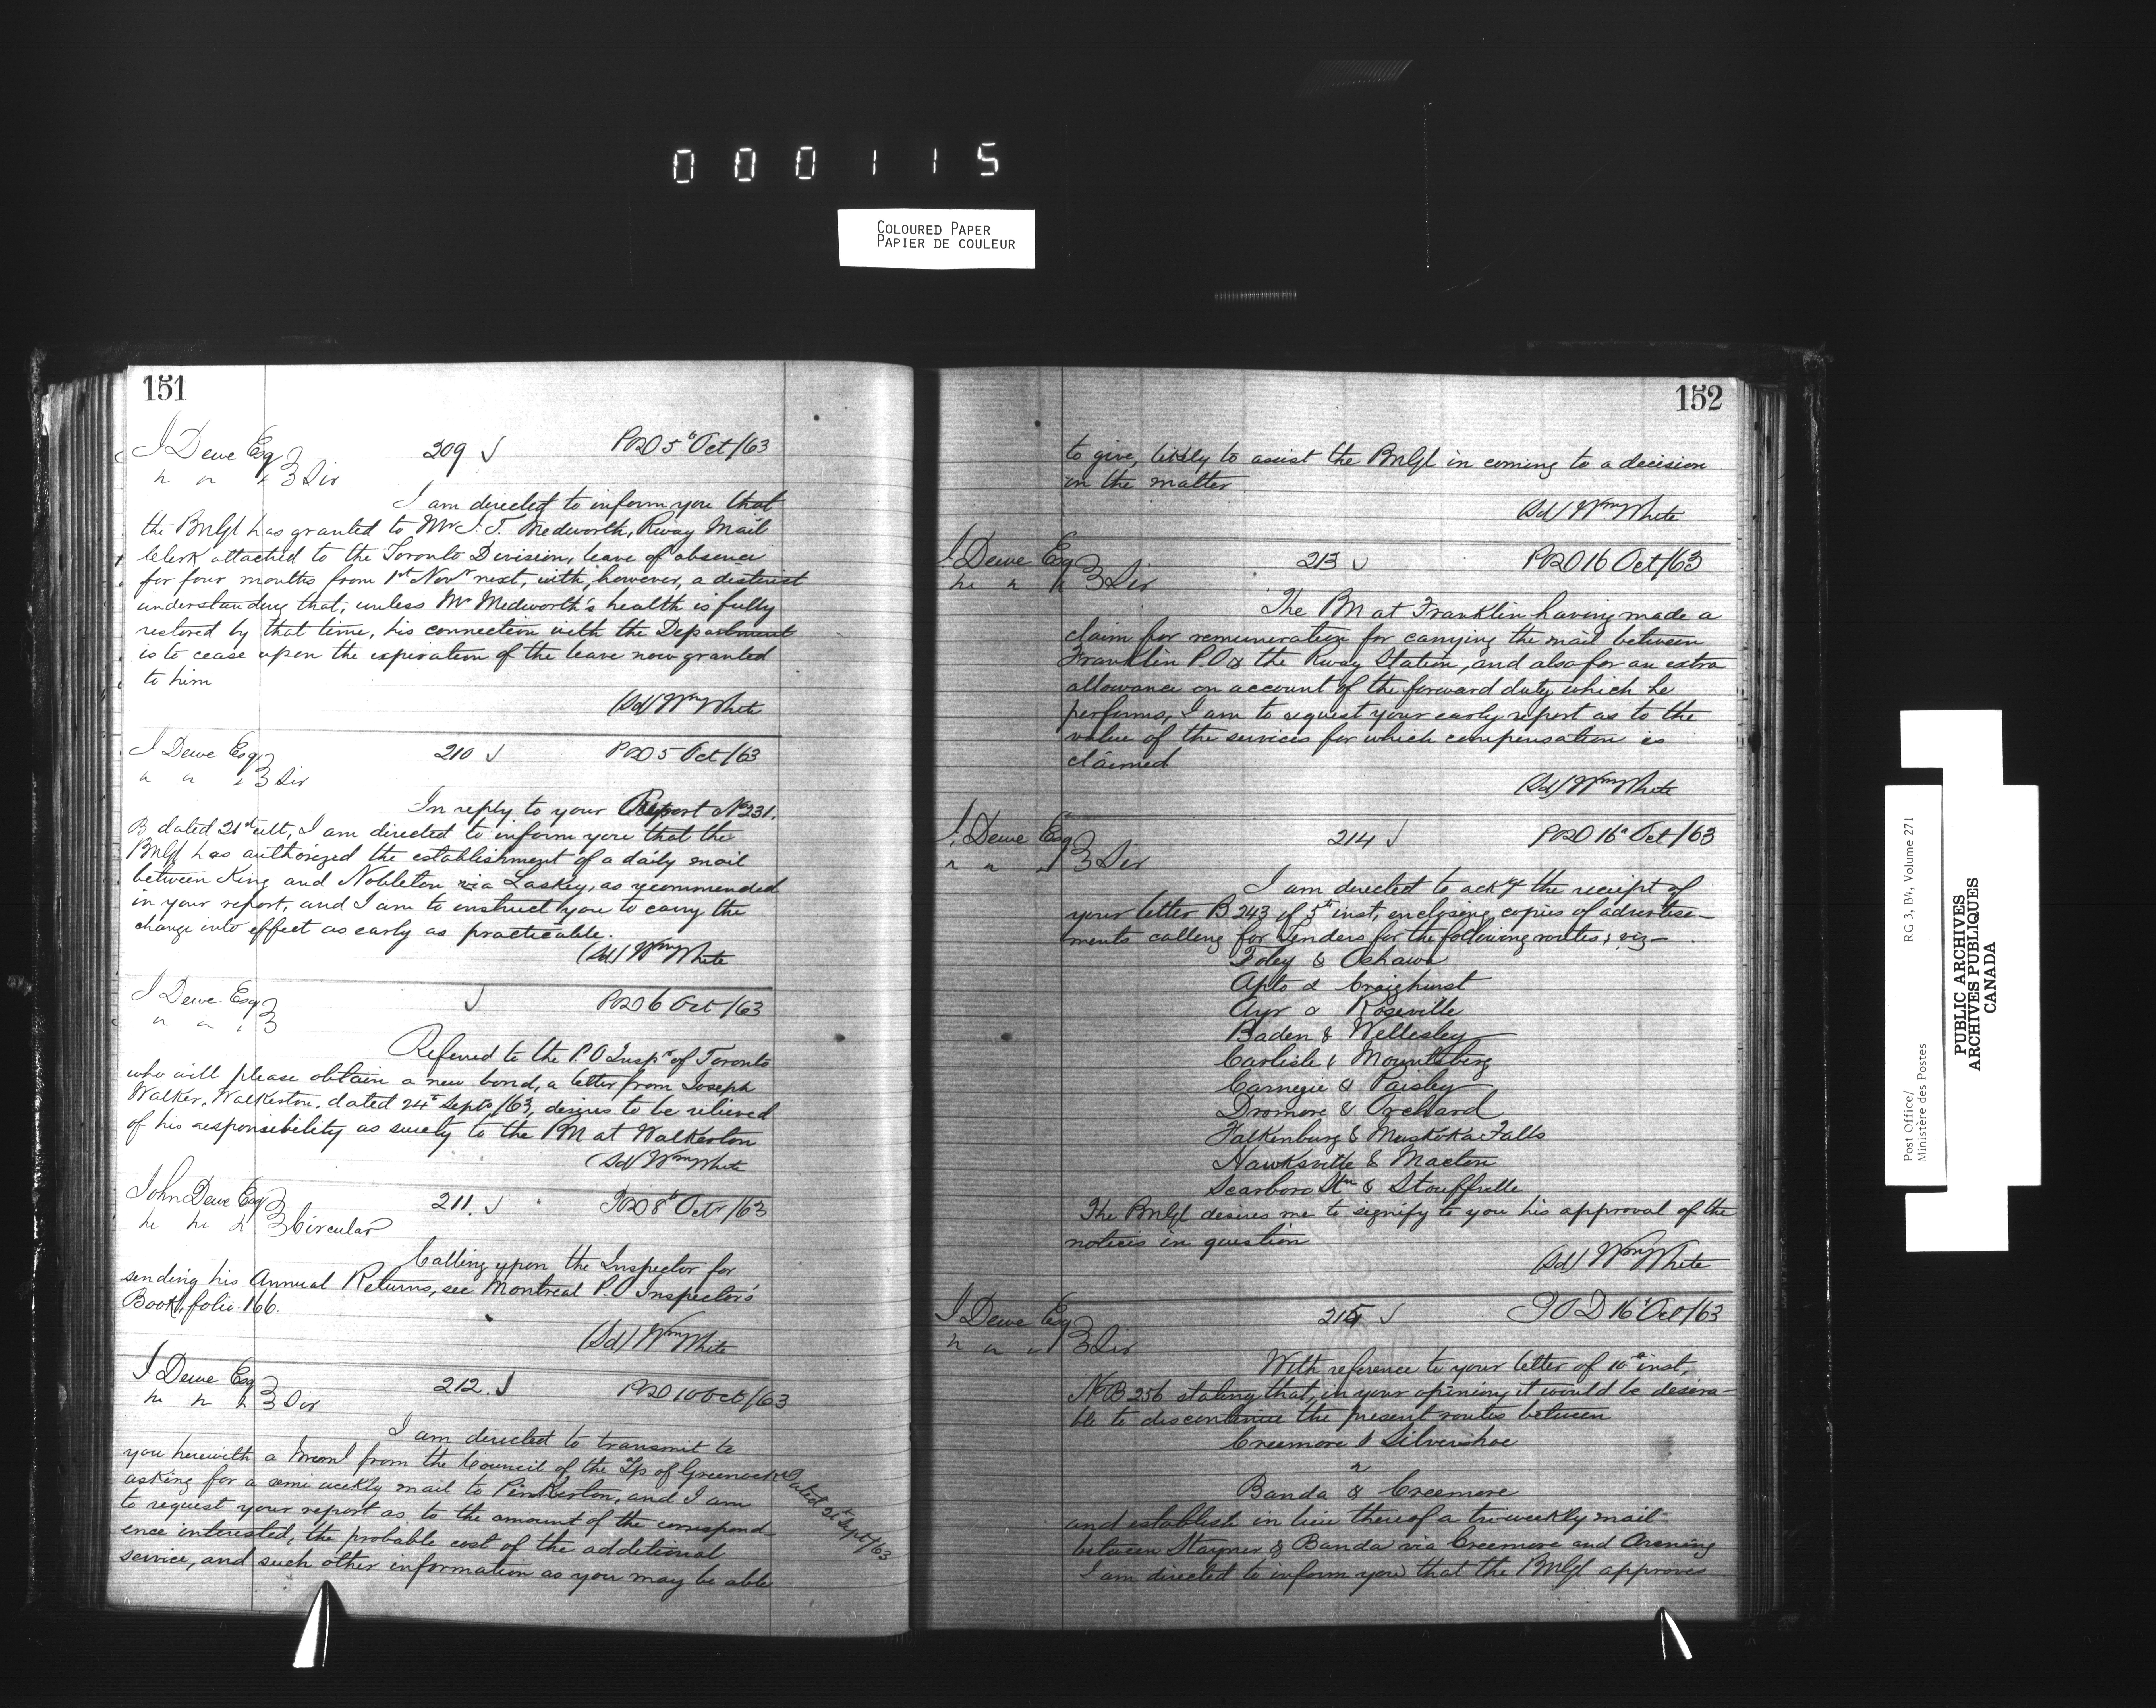 000115
COLOURED PAPER
PAPIER DE COULEUR
151
J Dewe Esq 209 POD 5th Oct/63
" " " Sir
I am directed to inform you that
the PMGl has granted to Mr J. T. Medworth, Rway Mail
Clerk attached to the Toronto Division, leave of absence
for four months from 1st Novr next, with, however, a distinct
understanding that, unless Mr Medworth's health is fully
restored by that time, his connection with the Department
is to cease upon the expiration of the leave now granted
to him
(Sd) Wm White
J Dewe Esq 210 POD 5 Oct/63
" " " Sir
In reply to your Report No 231.
B dated 21st ult, I am directed to inform you that the
PMGl has authorized the establishment of a daily mail
between King and Nobleton via Laskey, as recommended
in your report, and I am to instruct you to carry the
change into effect as early as practicable.
(Sd) Wm White
J Dewe Esq POD 6 Oct/63
" " "
Referred to the P.O Inspr of Toronto
who will please obtain a new bond, a letter from Joseph
Walker, Walkerton, dated 24th Septr/63, desires to be relieved
of his responsibility as surety to the PM at Walkerton
(Sd) Wm White
John Dewe Esq 211. POD 8th Octr/63
" " " Circular
Calling upon the Inspector for
sending his Annual Returns, see Montreal P.O Inspector's
Book, folio 166.
(Sd) Wm White
J Dewe Esq 212. POD 10 Oct/63
" " " Sir
I am directed to transmit to
you herewith a Meml from the Council of the Tp of Greenock dated 21st Sept/63
asking for a semi weekly mail to Pinkerton, and I am
to request your report as to the amount of the correspond-
ence interested, the probable cost of the additional
service, and such other information as you may be able
152
to give, likely to assist the PMGl in coming to a decision
in the matter
(Sd) Wm White
J Dewe Esq 213 POD 16 Oct/63
" " " Sir
The PM at Franklin having made a
claim for remuneration for carrying the mail between
Franklin P.O & the Rway Station, and also for an extra
allowance on account of the forward duty which he
performs, I am to request your early report as to the
value of the services for which compensation is
claimed
(Sd) Wm White
J. Dewe Esq 214 POD 16th Oct/63
" " " Sir
I am directed to ackge the receipt of
your letter B 243 of 5th inst, enclosing copies of advertise-
ments calling for Tenders for the following routes; viz-
Foley & Oshawa
Apto & Craighurst
Ayr & Roseville
Baden & Wellesley
Carlisle & Mountsberg
Carnegie & Paisley
Dromore & Orchard
Falkenburg & Muskoka Falls
Hawksville & Macton
Scarboro Stn & Stouffville
The PMGl desires me to signify to you his approval of the
notices in question
(Sd) Wm White
J Dewe Esq 215 POD 16th Oct/63
" " " Sir
With reference to your letter of 10th inst,
No B 256 stating that, in your opinion, it would be desira-
ble to discontinue the present routes between
Creemore & Silvershoe
&
Banda & Creemore
and establish in lieu thereof a tri-weekly mail
between Stayner & Banda via Creemore and Avening
I am directed to inform you that the PMGl approves
Post Office/
Ministère des Postes
RG 3, B4, Volume 271
PUBLIC ARCHIVES
ARCHIVES PUBLIQUES
CANADA